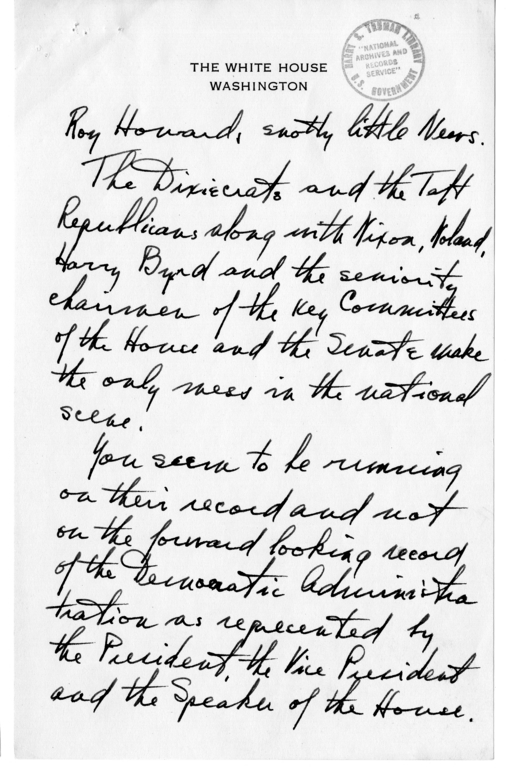 HARRY S. TRUMAN LIBRARY
"NATIONAL
ARCHIVES AND
RECORDS
SERVICE"
U.S. GOVERNMENT
THE WHITE HOUSE
WASHINGTON
Roy Howards snotty little News.
The Dixiecrats and the Taft
Republicans along with Nixon, Noland,
Harry Byrd and the seniority
chairmen of the Key Committees
of the House and the Senate make
the only mess in the national
scene.
You seem to be running
on their record and not
on the forward looking record
of the Democratic Administra
tration as represented by
the President, the Vice President
and the Speaker of the House.